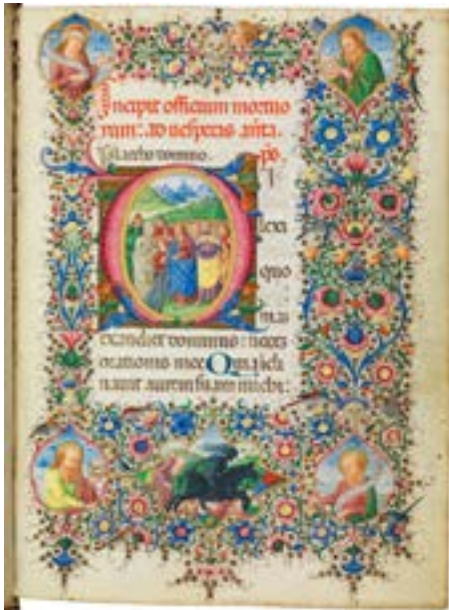 Incipit officium mortuo
rum: ad uesperas añta.
Placebo domino. ps.
D I
lexi
quo
exaudiet dominus: uocem
orationis mee Quia icli
nauit aurem suam michi: